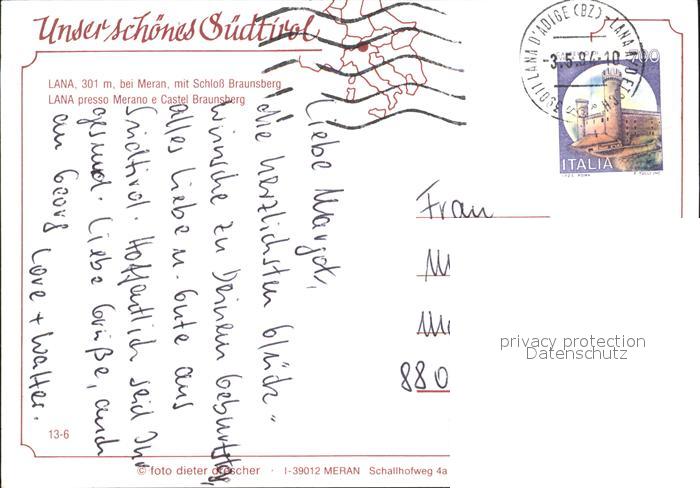 Unser schönes Südtirol
LANA, 301 m, bei Meran, mit Schloß Braunsberg
LANA presso Merano e Castel Braunsberg
Liebe Margot,
die herzlichsten Glück-
wünsche zu Deinem Geburtstag
alles Liebe u. Gute aus
Südtirol. Hoffentlich seid Ihr
gesund. Liebe Grüße, auch
an Georg Lore + Walter.
13-6
© foto dieter drescher · I-39012 MERAN Schallhofweg 4a
39011 LANA D'ADIGE (BZ)
-3.5.94-10
700
ITALIA
Frau
880
privacy protection
Datenschutz